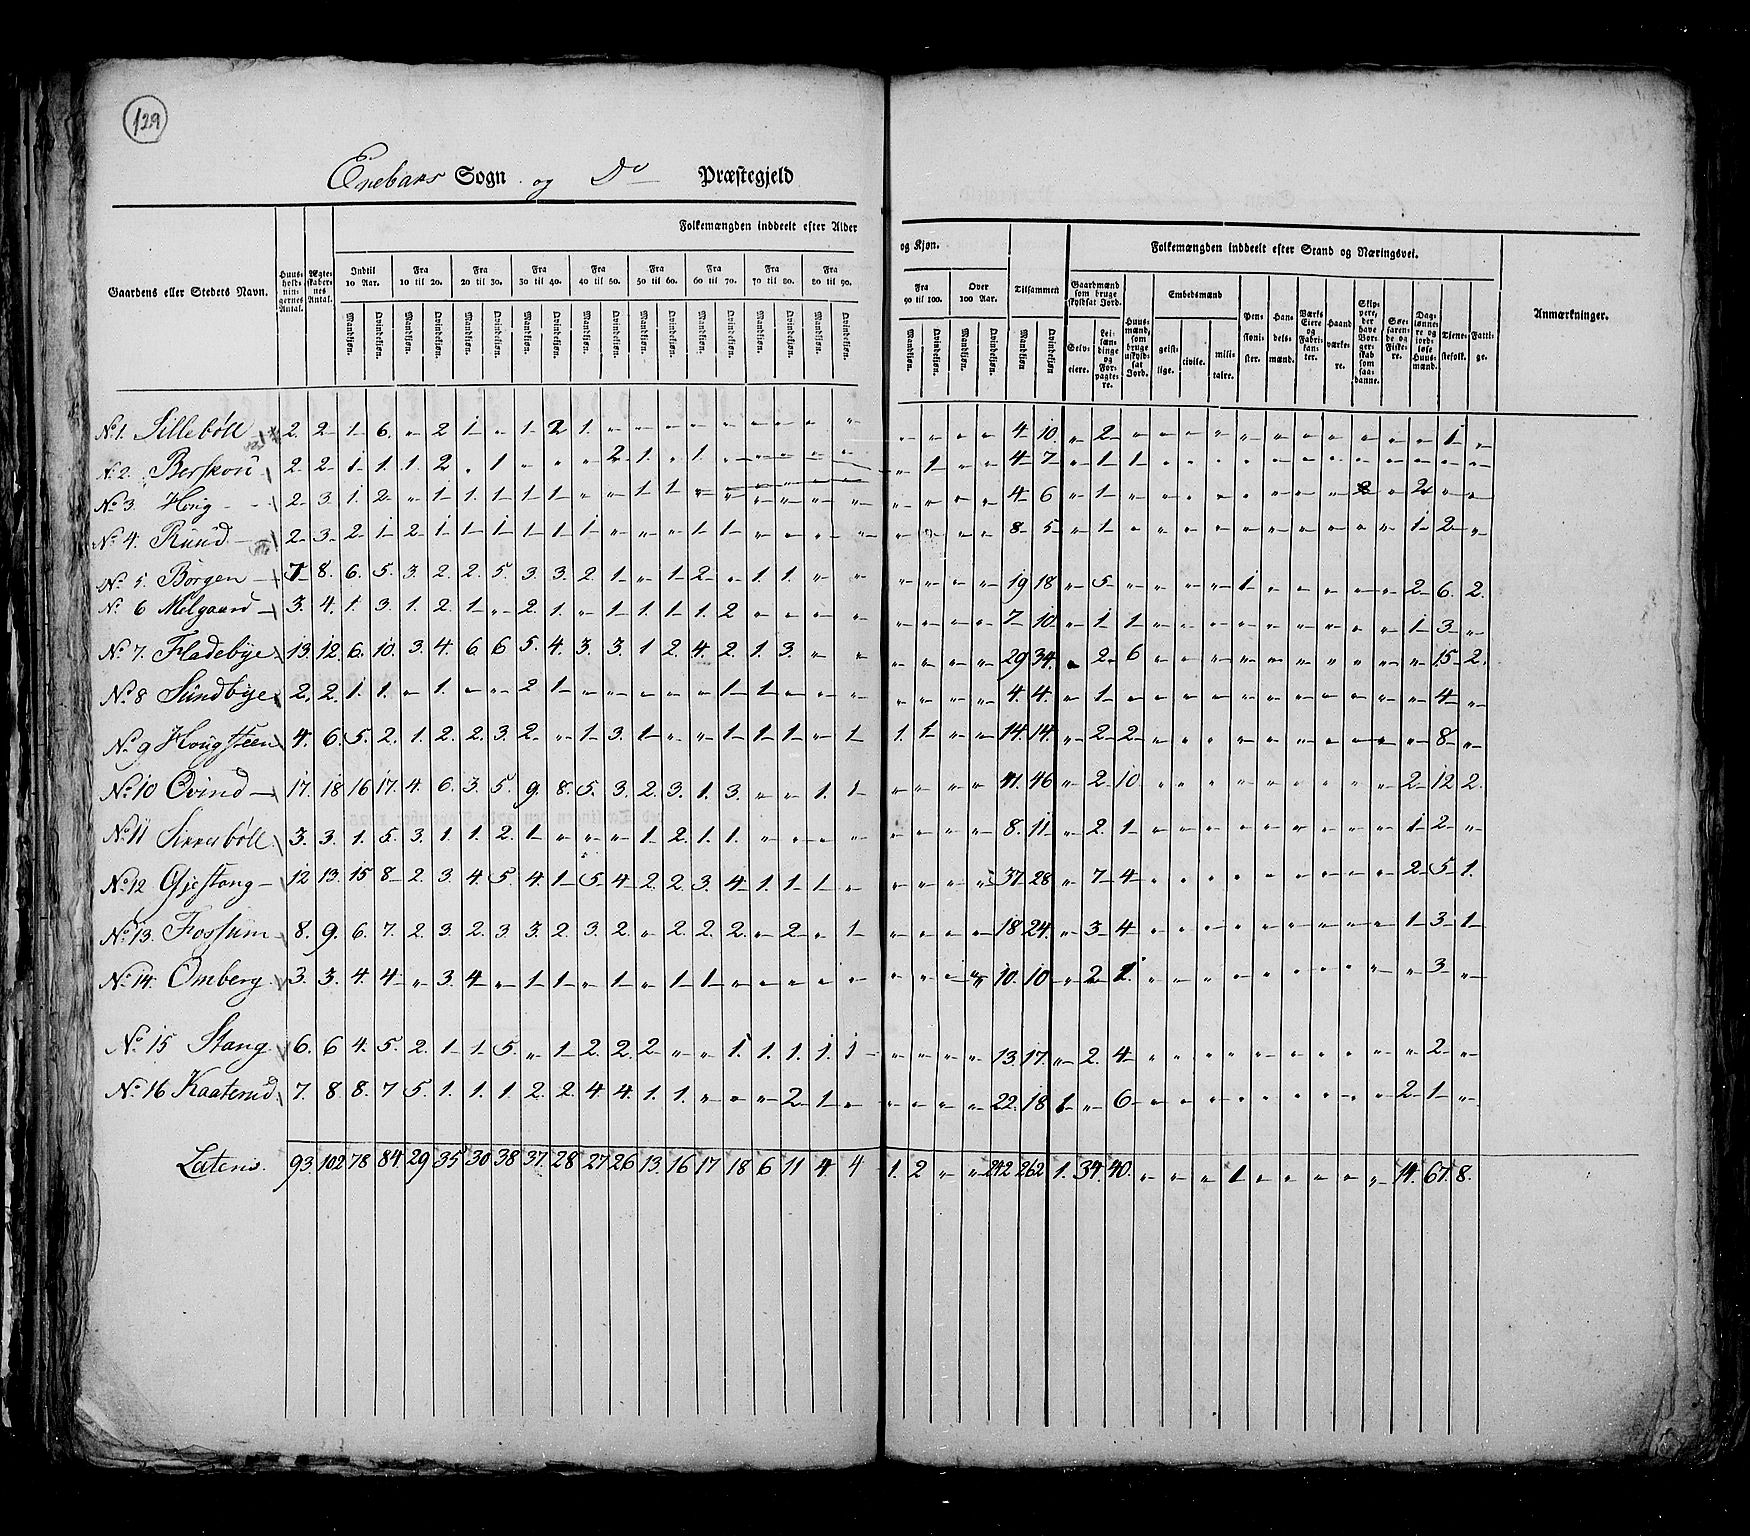 129
Enebaks Sogn og Do Præstegjeld
Gaardens eller Stedets Navn.
Huus-holdnin-gernes Antal.
Ægte-skaber-nes Antal.
Folkemængden inddeelt efter Alder og Kjøn.
Indtil 10 Aar. Fra 10 til 20. Fra 20 til 30. Fra 30 til 40. Fra 40 til 50. Fra 50 til 60. Fra 60 til 70. Fra 70 til 80. Fra 80 til 90. Fra 90 til 100. Over 100 Aar. Tilsammen
Mandkiøn. Qvindekiøn. Mandkiøn. Qvindekiøn. Mandkiøn. Qvindekiøn. Mandkiøn. Qvindekiøn. Mandkiøn. Qvindekiøn. Mandkiøn. Qvindekiøn. Mandkiøn. Qvindekiøn. Mandkiøn. Qvindekiøn. Mandkiøn. Qvindekiøn. Mandkiøn. Qvindekiøn. Mandkiøn. Qvindekiøn. Mandkiøn. Qvindekiøn
Folkemængden inddeelt efter Stand og Næringsvei.
Gaardmænd som bruge skyldsat Jord.
Selv-eiere. Lei-læn-dinge og For-pagte-re.
Huus-mænd, som bruge uskyld-sat Jord.
Embedsmænd
geist-lige. civile. mili-taire.
Pen-sioni-ster. Han-dels-mænd. Værks Eiere og Fabri-kan-ter. Haand-værke-re. Skip-pere, der have Bor-ger-skab som saa-danne. Søe-faren-de og Fiske-re. Dag-lønne-re og jord-løse Huus-mænd. Tjene-stefolk. Fatti-ge.
Anmærkninger.
No 1. Sillebøll 2. 2 1 6. " 2 1 " 1 2 1. " " " " " " " " " " " " " 4 10. " 2 " " " " " " " " " " " 1 "
No 2. 2 2 1 1. 1. 2 " 1 " " " 2 1 " 1 " " " " " " 1 " " 4 7 " 1 1 " " " " " " " " " " " "
No 3. Houg 2 3. 1. 2 " 1 1. 1. 1 1 " " 1 1 " " " " " " " " " " 4 6 " 1 " " " " " " " " " " 2 " "
No 4. Rund 2 3. 2 1 2 1 1 1 1 1 1 " " " 1 1 " " " " " " " " 8 5 " 1 " " " " " " " " " " 1 2 "
No 5. Børgen 7 8. 6. 5. 3. 2. 2. 5. 3. 3. 2 1 " 1 2 " 1. 1. " " " " " " 19 18 " 5 " " " " 1 " " " " " 2 6. 2.
No 6 Melgaard 3. 4. 1. 3. 1. 2. 1 " 2. 1. " 1. 1. 1 1. 2 " " " " " " " " 7 10. " 1 1 " " " " " " " " " 1 3 "
No 7. Fladebye 13. 12. 6. 10. 3. 4. 6 6 5. 4. 3. 3. 1 2. 4. 2 1. 3. " " " " " " 29 34. " 2 6 " " " " " " " " " " 15 2.
No 8 Sundbye 2. 2. 1. 1. " 1. " " 2 1 " " " " " 1 1 " " " " " " " 4. 4. " 1 " " " " " " " " " " " 4 "
No 9 Hougsteen 4. 6. 5. 2. 1. 2. 2. 3. 2. " 1 3. 1 " " 1 1 1 " 1 1. 1 " " 14. 14. " 2 2 " " " " " " " " " " 8 "
No 10 Øvind 17. 18 16 17. 4. 6. 3. 5. 9. 8. 5. 3. 2. 3. 1. 3. " " 1. 1 " " " " 41. 46 " 2 10. " " " " " " " " " 2 12 2.
No 11 3. 3. 1. 5. 3. 1. 1. 2. 1 " " " 1 2. 1. 1. " " " " " " " " 8. 11 " 2. 1 " " " " " " " " " 1 2 "
No 12 Gjestang 12 13. 15 8 2. 3. 4. 5. 4. 1 5 4 2 2. 3. 4 1. 1 1 " " " " " 37 28 " 7 4 " " " " " " " " " 2 5 1.
No 13. Fossum 8. 9. 6. 7. 2. 3. 2. 3. 3. 2. 3. 2. " 2. 2. 2 " 2 " 1 " " " " 18 24. " 3 4 " " " " " " " " " 1 3 1
No 14. Omberg 3. 3. 4. 4 " 3. 4. " 1 1 " 1 " 1 1 " " " " " " " " " 10. 10 " 2 1. " " " " " " " " " " 3 "
No 15 Stang 6. 6 4. 5. 2. 1 1. 5. " 1 2. 2. 2 " " 1. 1. 1. 1. 1 " " " " 13. 17. " 2. 4 " " " " " " " " " " 2 "
No 16 Kaaterud 7. 8. 8. 7 5. 1. 1. 1 2. 2. 4. 4. 1. 1. " " " 2 1 " " " " " 22. 18 1 " 6 " " " " " " " " " 2 1 "
Lateris. 93. 102 78 84. 29 35 30 38 37. 28 27 26 13. 16 17 18 6 11 4 4 1. 2 " " 242 262 1. 34. 40. " " " 1 " " " " " 14. 67. 8.